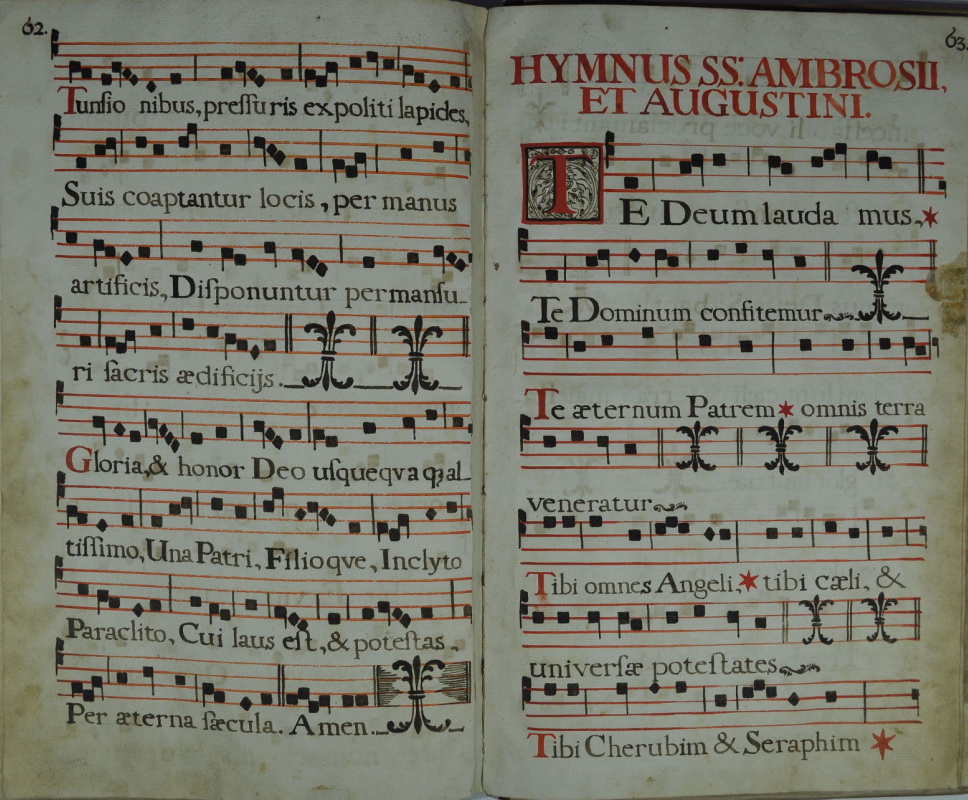 62.
Tunsio nibus, preſſuris expoliti lapides,
Suis coaptantur locis, per manus
artificis, Diſponuntur permanſu-
ri ſacris ædificijs.
Gloria, & honor Deo uſquequa qꝫ al-
tiſſimo, Una Patri, Filioqve, Inclyto
Paraclito, Cui laus eſt, & poteſtas.
Per æterna ſæcula. Amen.
63.
HYMNUS SS: AMBROSII,
ET AUGUSTINI.
TE Deum lauda mus,*
Te Dominum confitemur
Te æternum Patrem * omnis terra
veneratur
Tibi omnes Angeli, * tibi cæli, &
univerſæ poteſtates
Tibi Cherubim & Seraphim *